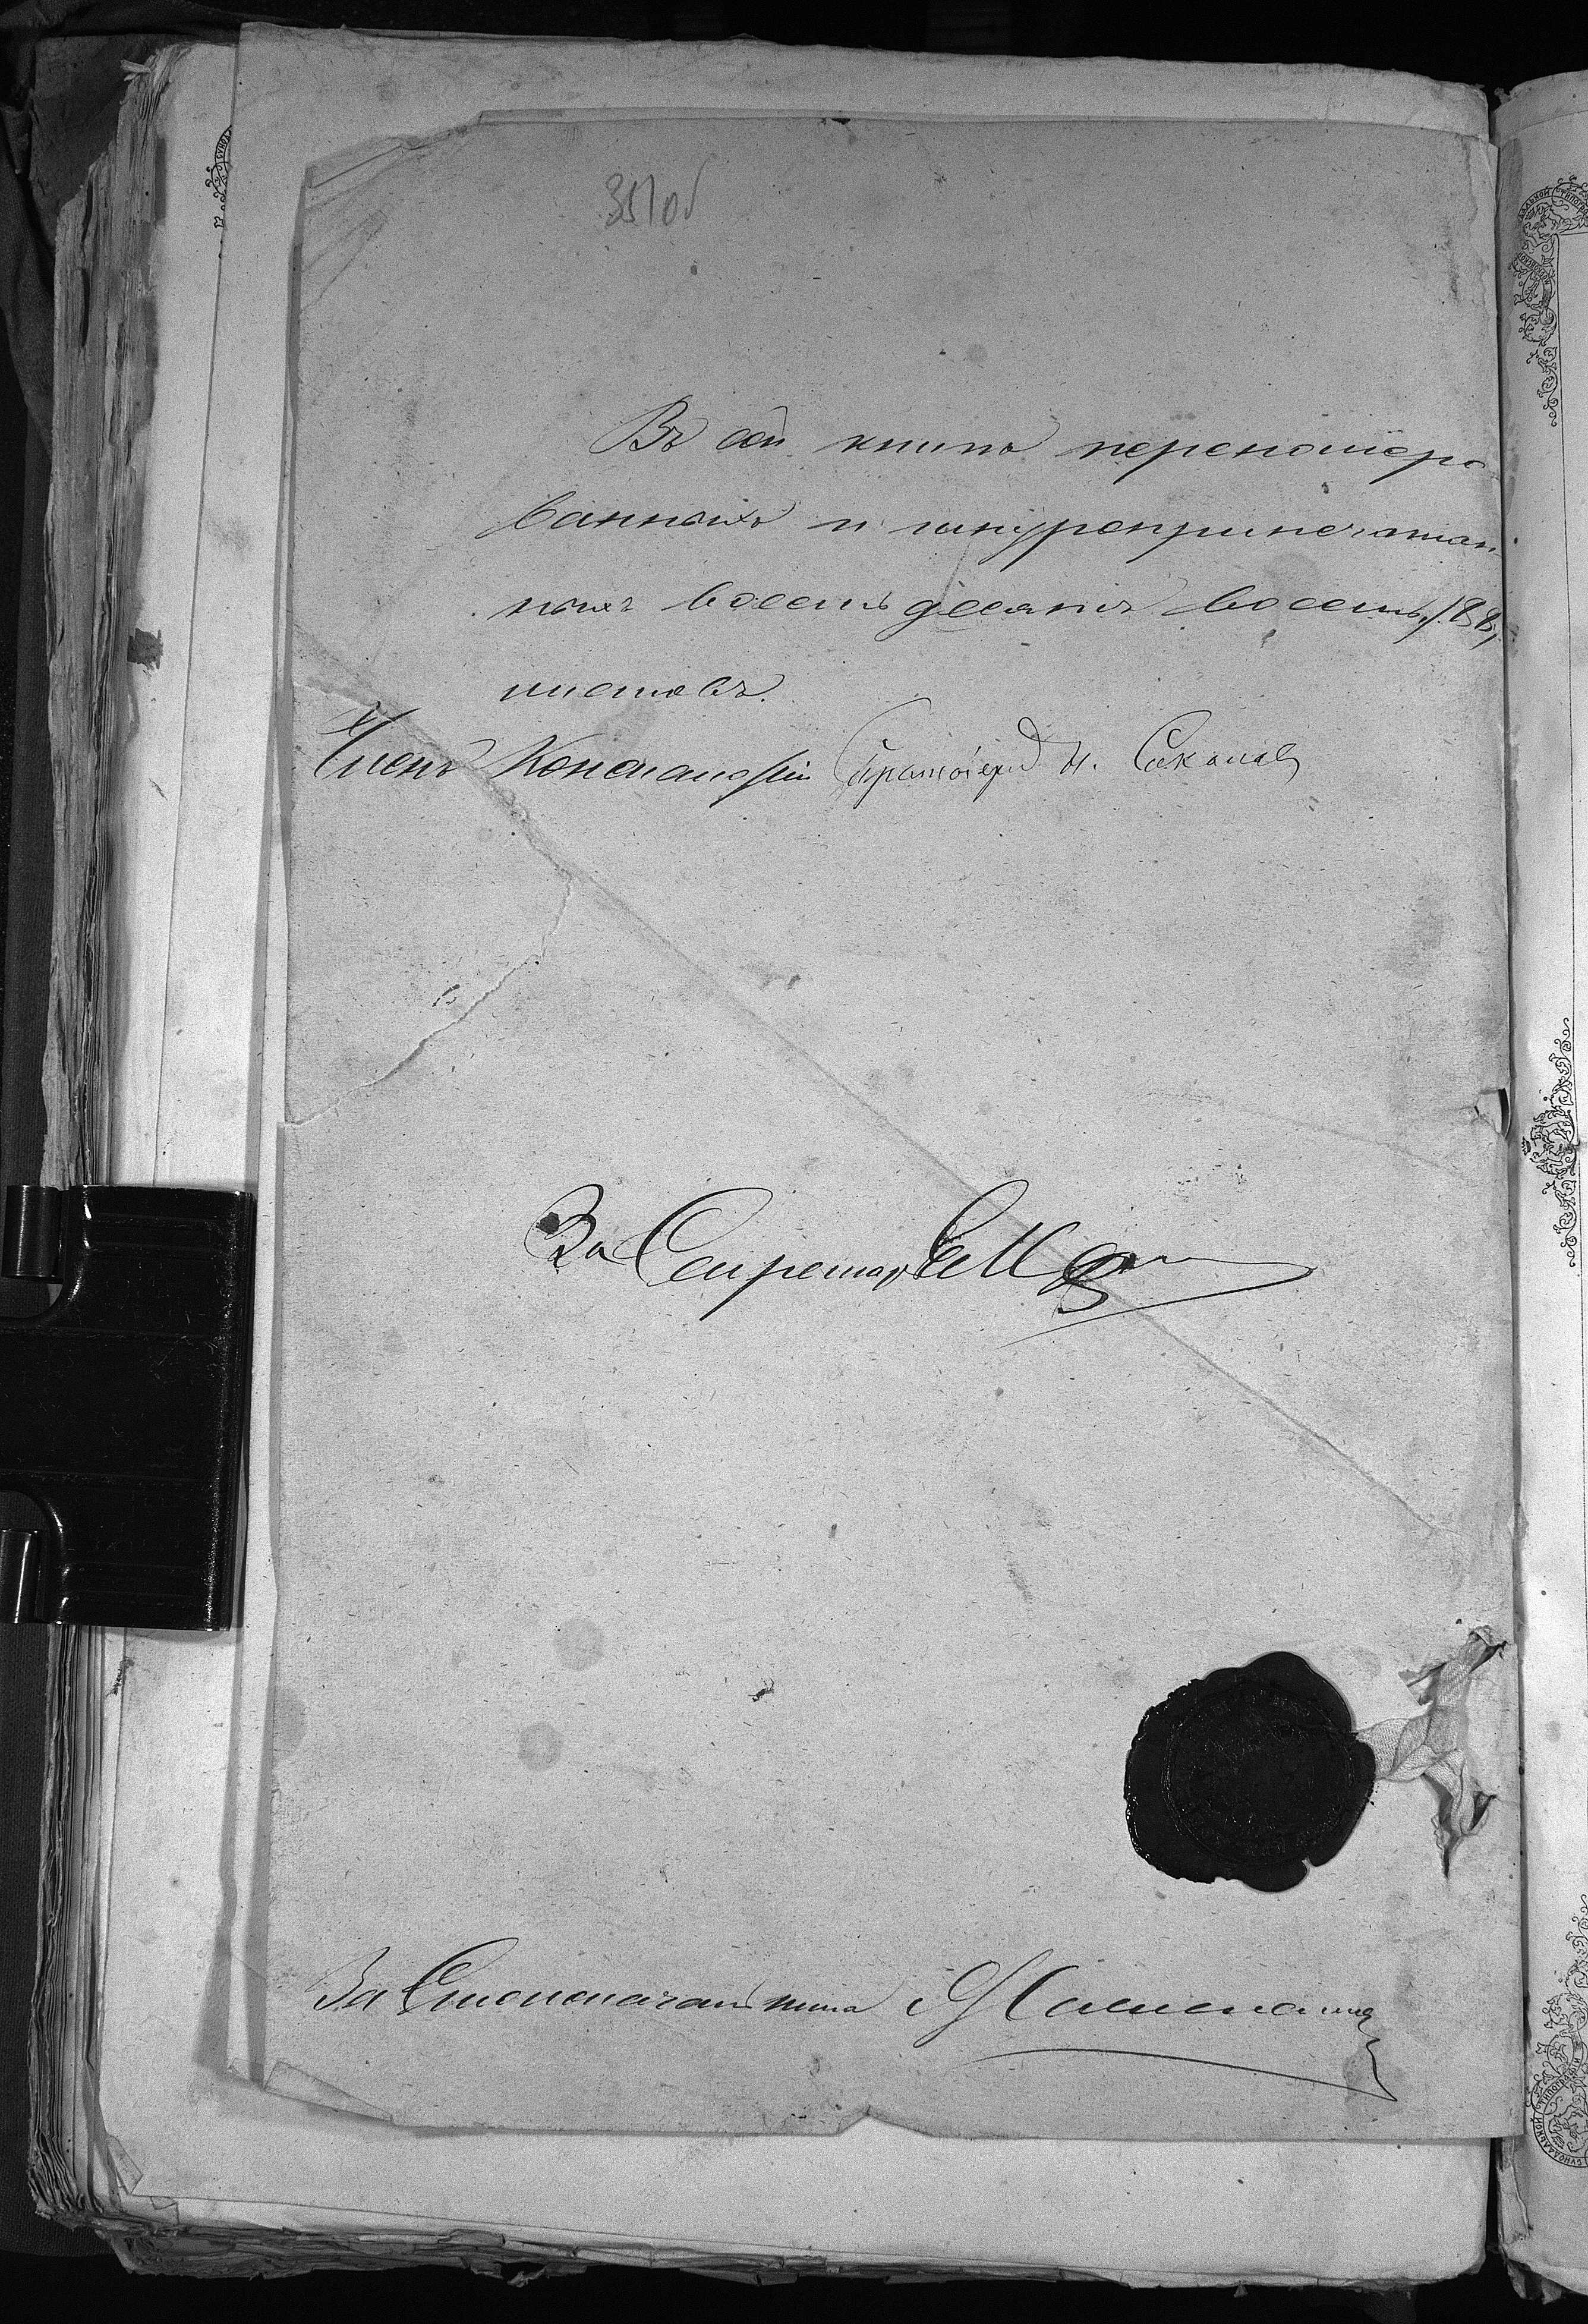 351об
Въ сей книгѣ перенумеро
ванныхъ и шнуроприпечатан
ныхъ восемьдесятъ восемь /88/
листовъ.
Членъ Консисторіи Протоіерей Н. Соколовъ
За Секретаря
За Столоначальника